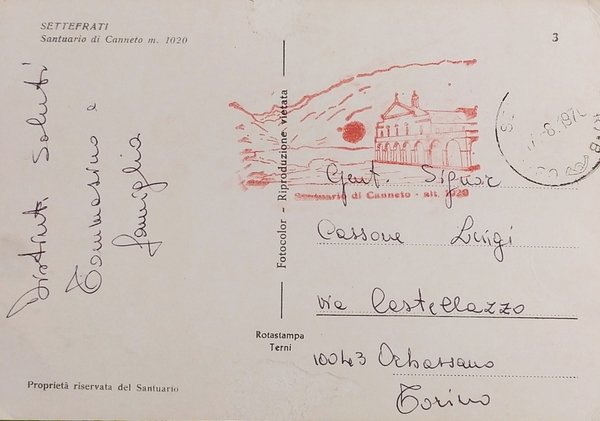 SETTEFRATI
Santuario di Canneto m. 1020
3
Distinti Saluti
Tommasino e
famiglia
Fotocolor - Riproduzione vietata
Santuario di Canneto - alt. 1020
Gent. Signor
Cassone Luigi
via Castellazzo
10043 Orbassano
Torino
Rotastampa
Terni
Proprietà riservata del Santuario